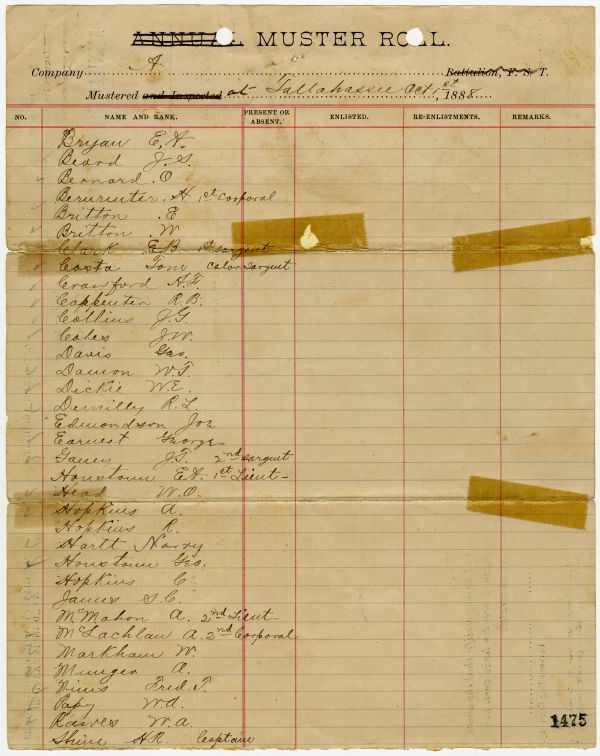 ANNUAL MUSTER ROLL.
Company A Battalion, F. S. T.
Mustered and Inspected at Tallahassee Oct 1st 1888
NO. NAME AND RANK. PRESENT OR ABSENT. ENLISTED. RE-ENLISTMENTS. REMARKS.
Bryan E. N.
Beard J. S.
Bernard . O
H 1st Corporal
Britton . E
Britton . W
Clark E B 1st Sargent
Costa Tom color sargent
Crawford H. F.
Carpenter R. B.
Collins J. G.
Coles J. W.
Davis Geo.
Damon W. T.
Dickie W. E.
Demilly R. L.
Edmondson Joe
Earnest George
Ganey J. T. 2nd Sargent
Houstoun E. A. 1st Lieut-
Head W. O.
Hopkins A.
Hopkins R.
Hartt Harry
Houstoun Geo.
Hopkins C.
James S. C.
McMahon A. 2nd Lieut-
McLachlan A. 2nd Corporal
Markham W.
Munger A.
Nims Fred. T.
Papy W. A.
Rawes W. A.
Shine H. R. Captain
1475